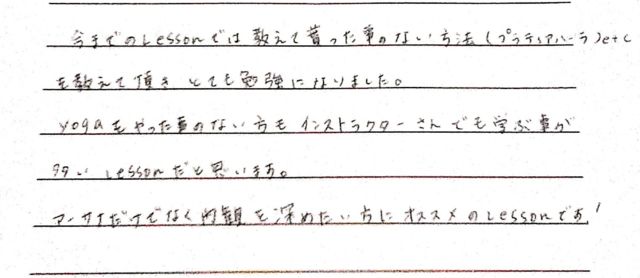 今までのLessonでは教えて貰った事のない方法(プラティアハーラ)etc
を教えて頂き とても勉強になりました。
yogaをやった事のない方もインストラクターさんでも学ぶ事が
多い Lessonだと思います。
アーサナだけでなく内観を深めたい方にオススメのLessonです!